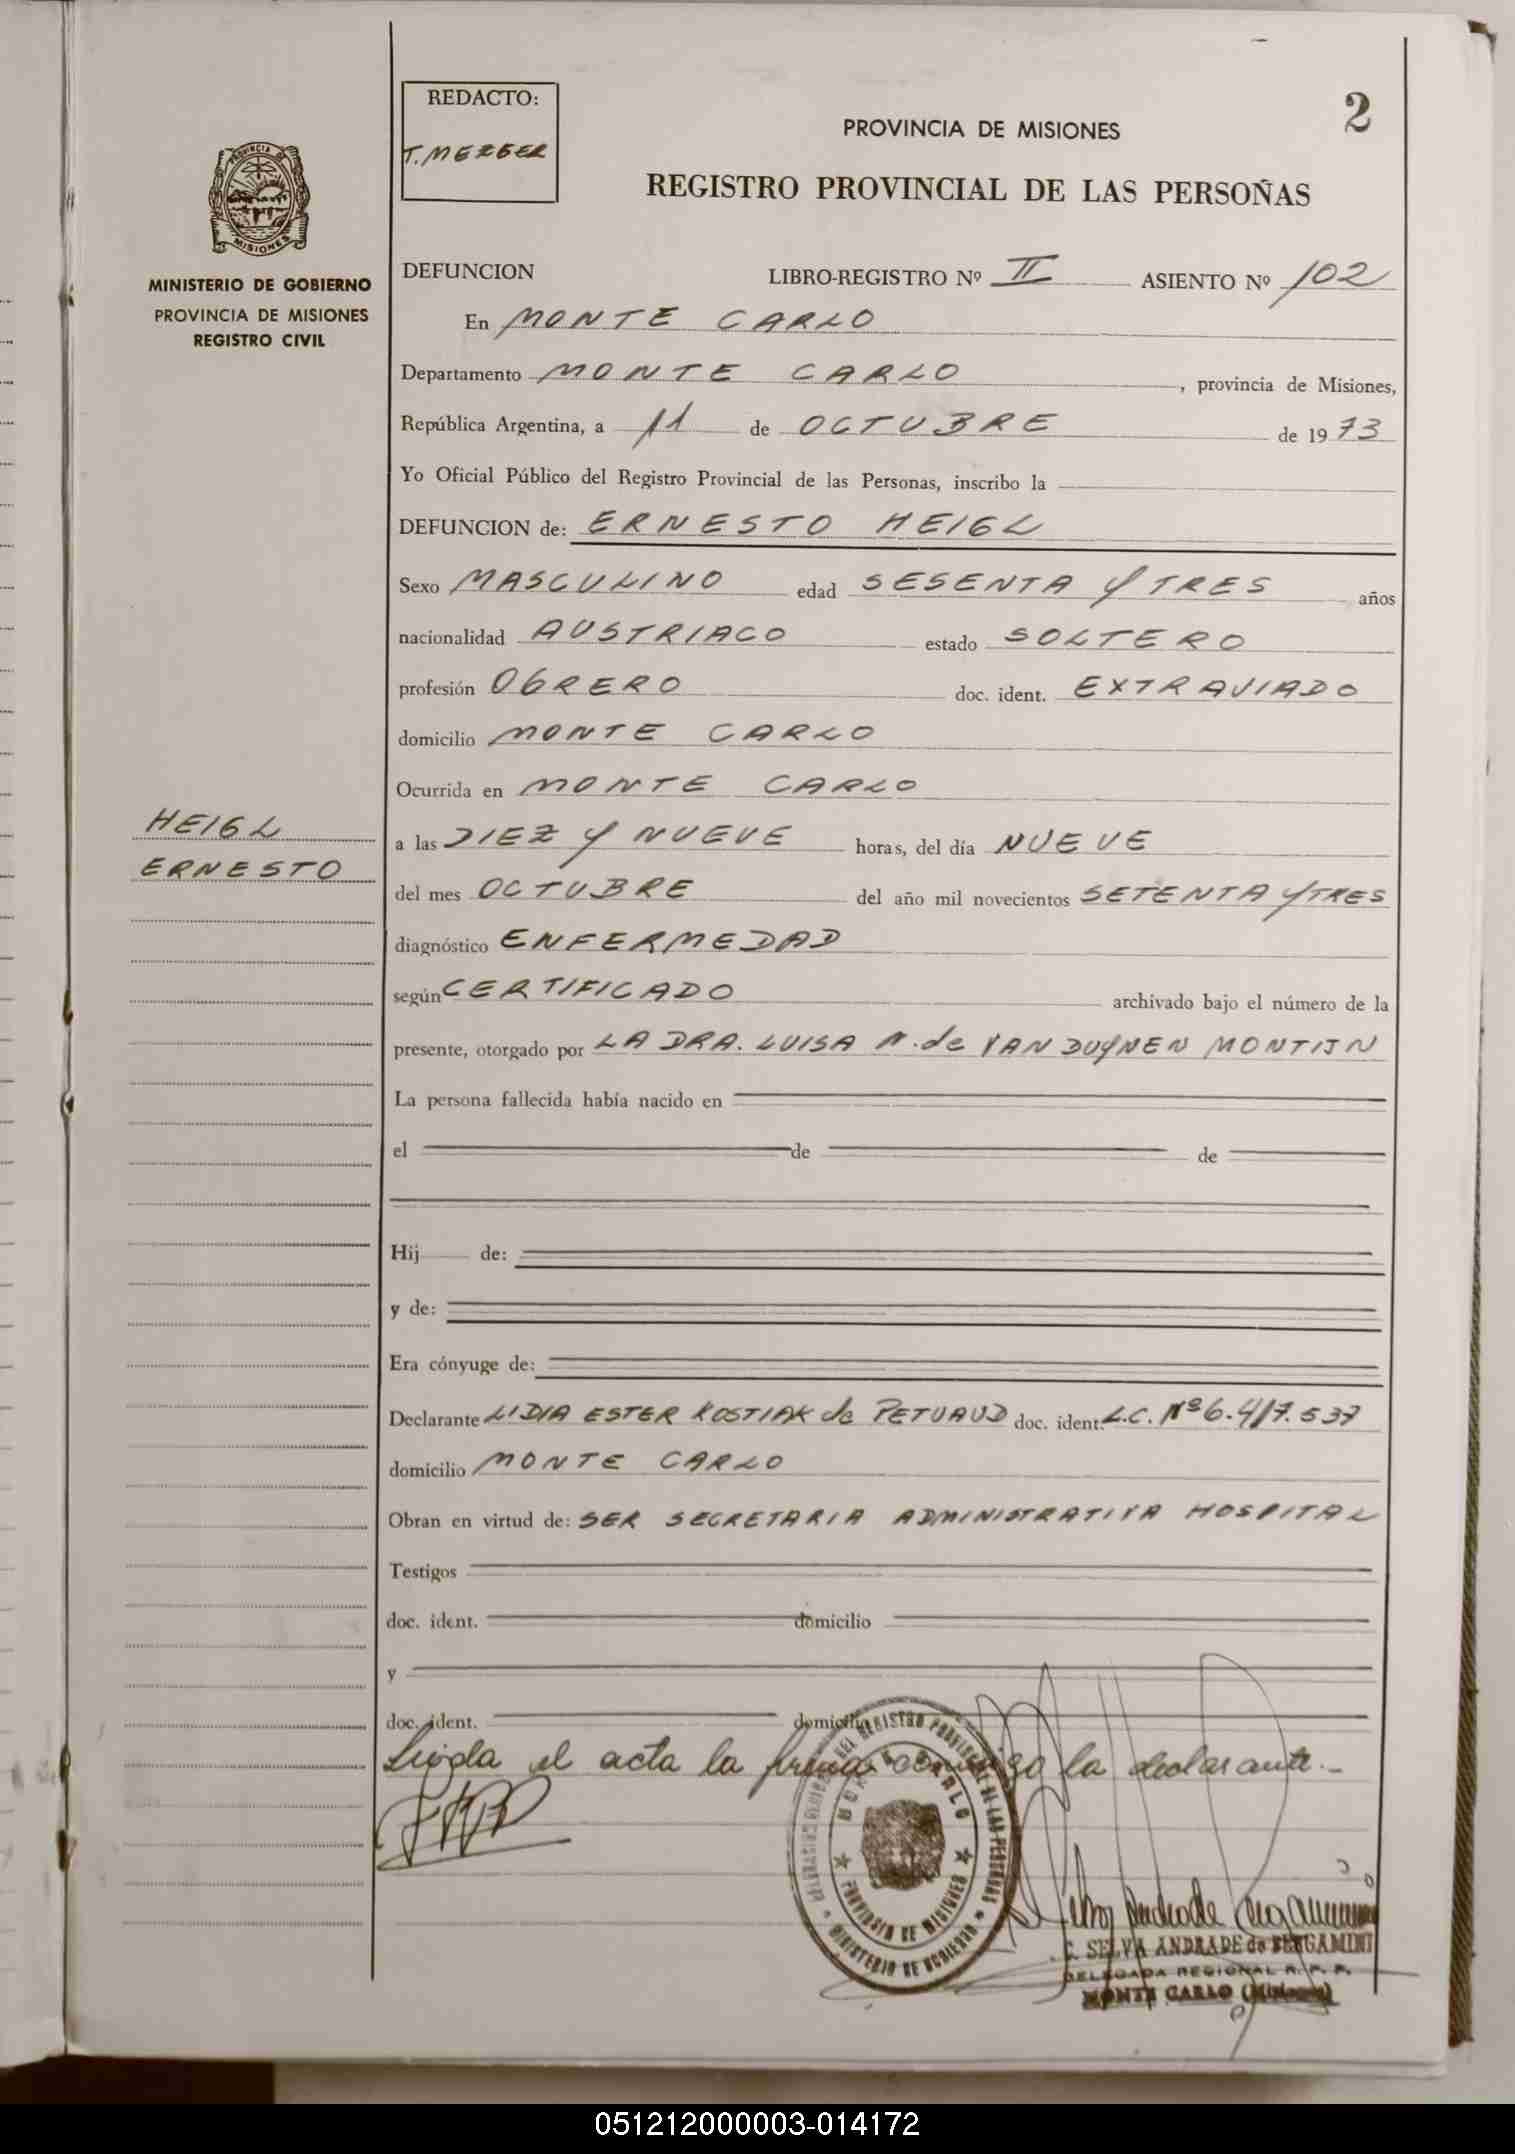 REDACTO:
T. MERGER
2
PROVINCIA DE MISIONES
REGISTRO PROVINCIAL DE LAS PERSOÑAS
PROVINCIA DE
MISIONES
MINISTERIO DE GOBIERNO
PROVINCIA DE MISIONES
REGISTRO CIVIL
DEFUNCION LIBRO-REGISTRO Nº II ASIENTO Nº 102
En MONTE CARLO
Departamento MONTE CARLO, provincia de Misiones,
República Argentina, a 11 de OCTUBRE de 1973
Yo Oficial Público del Registro Provincial de las Personas, inscribo la
DEFUNCION de: ERNESTO HEIGL
Sexo MASCULINO edad SESENTA Y TRES años
nacionalidad AUSTRIACO estado SOLTERO
profesión OBRERO doc. ident. EXTRAVIADO
domicilio MONTE CARLO
Ocurrida en MONTE CARLO
HEIGL
ERNESTO
a las DIEZ Y NUEVE horas, del día NUEVE
del mes OCTUBRE del año mil novecientos SETENTA Y TRES
diagnóstico ENFERMEDAD
según CERTIFICADO archivado bajo el número de la
presente, otorgado por LA DRA. LUISA N. de VAN DUYNEN MONTIJN
La persona fallecida había nacido en
el de de
Hij de:
y de:
Era cónyuge de:
Declarante LIDIA ESTER KOSTIAK de PETUAUD doc. ident. L.C. Nº 6.417.537
domicilio MONTE CARLO
Obran en virtud de: SER SECRETARIA ADMINISTRATIVA HOSPITAL
Testigos
doc. ident. domicilio
y
doc. ident. domicilio
Leida el acta la firma conmigo la declarante.-
REGISTRO PROVINCIAL DE LAS PERSONAS
MONTE CARLO
PROVINCIA DE MISIONES
MINISTERIO DE GOBIERNO
SELVA ANDRADE de BERGAMINI
DELEGADA REGIONAL R. P. P.
MONTE CARLO (Misiones)
051212000003-014172